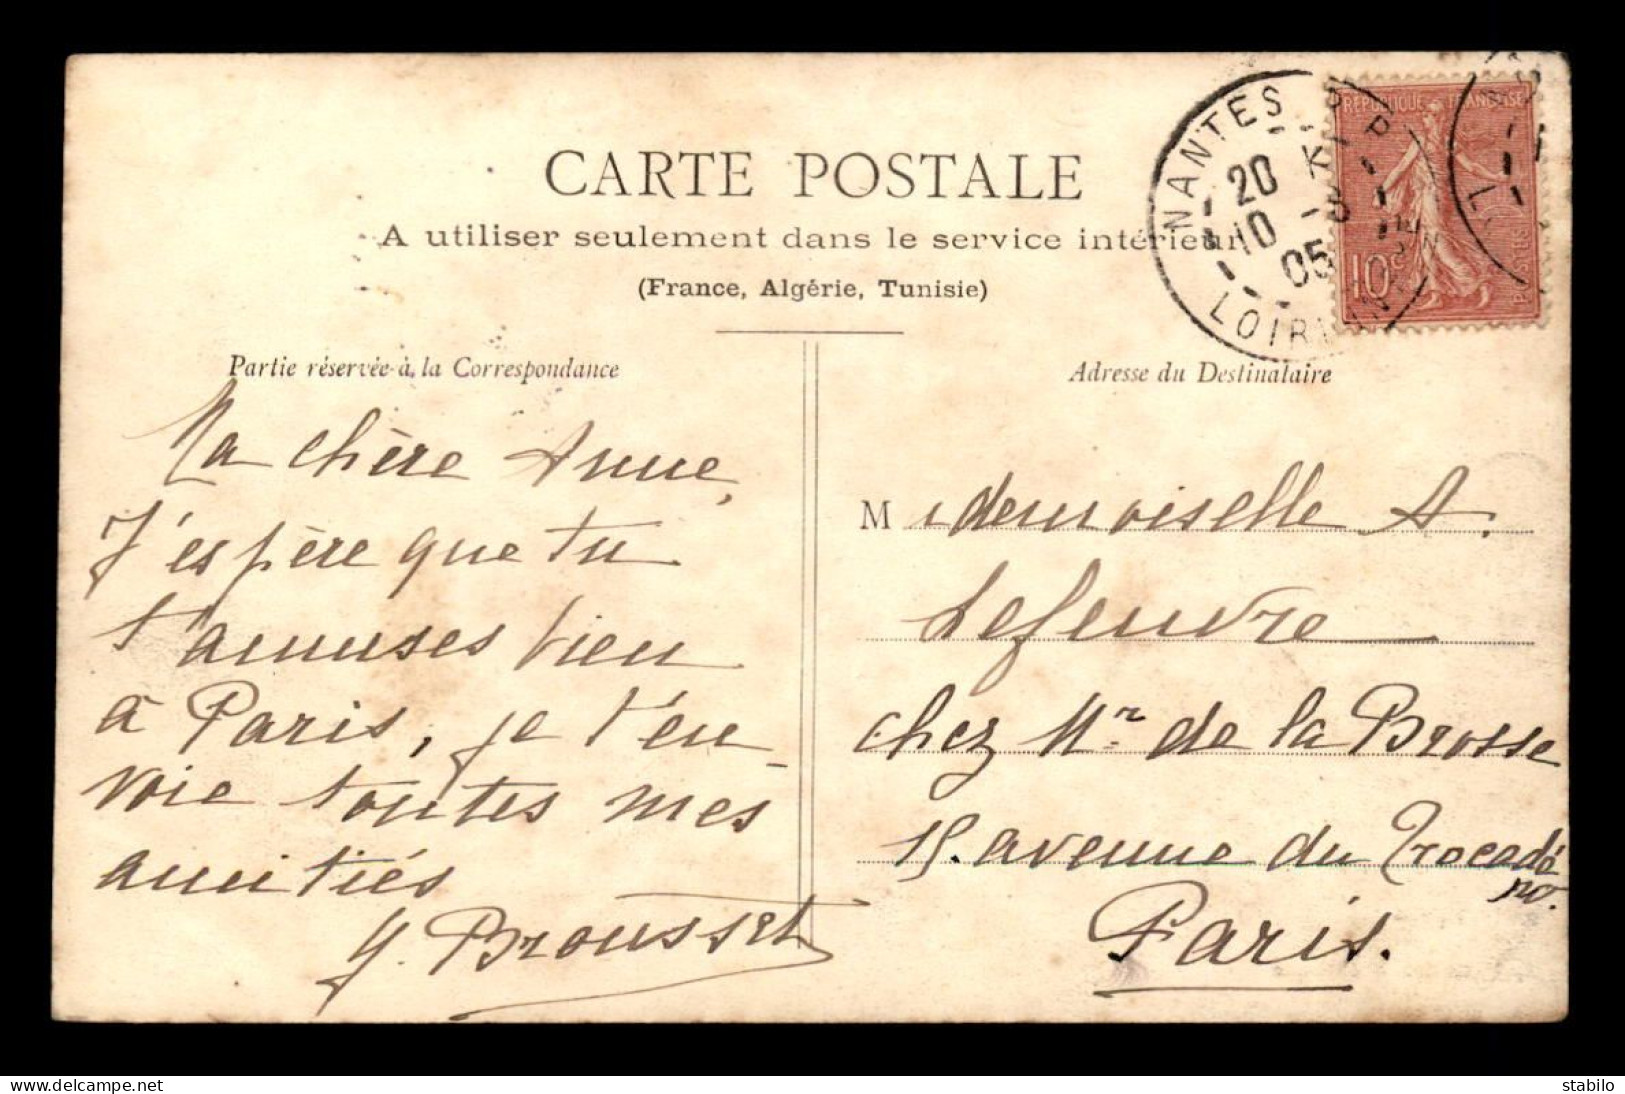 CARTE POSTALE
A utiliser seulement dans le service intérieur
(France, Algérie, Tunisie)
Partie réservée à la Correspondance
Ma chère Anne,
J'espère que tu
t'amuses bien
à Paris, je t'en-
voie toutes mes
amitiés
Y. Brousset
Adresse du Destinataire
Mademoiselle A.
Lefeuvre
chez Mr. de la Brosse
15. avenue du Trocadé
ro.
Paris.
NANTES R.P.
20
10 -5
05
LOIRE
REPUBLIQUE FRANÇAISE
10
POSTES
delcampe.net
stabilo